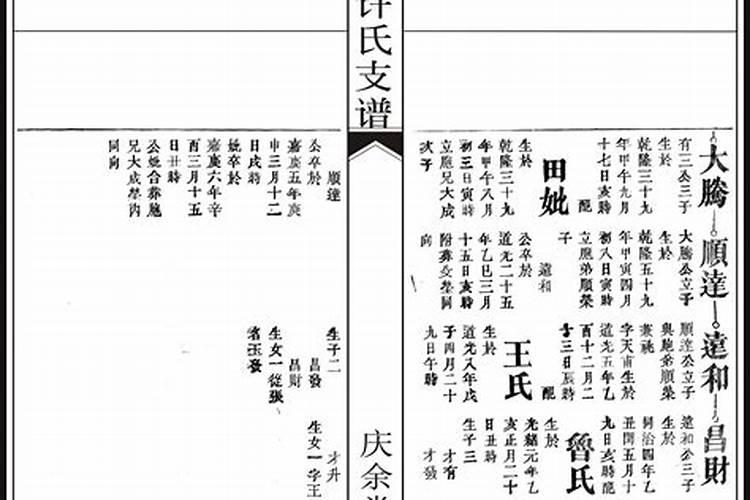 大騰 順達 遠和 昌財
有三公三子
生於
乾隆三十九
年甲午九月
十七日亥時
配
田妣
生於
乾隆三十九
年甲午八月
初三日寅時
立胞兄大成
次子
大騰公立子
生於
乾隆五十九
年甲寅四月
初八日寅時
立胞弟順榮
子
遠和
公卒於
道光二十五
年乙巳三月
十五日亥時
附葬父塋同
向
順達公立子
與胞弟順榮
兼祧
字天甫生於
道光五年乙
酉十二月二
十三日辰時
配
王氏
生於
道光八年戊
子四月二十
九日午時
遠和公三子
生於
同治四年乙
丑閏五月十
九日亥時配
魯氏
生於
光緒元年乙
亥正月二十
日丑時
生子三
才有
才發
许氏支谱
庆余
順達
公卒於
嘉慶五年庚
申三月十二
日戌時
妣卒於
嘉慶六年辛
酉三月十五
日丑時
公妣合葬胞
兄大成塋內
同向
生子二
昌發
昌財
生女一從張
名玉發
才升
生女一字王